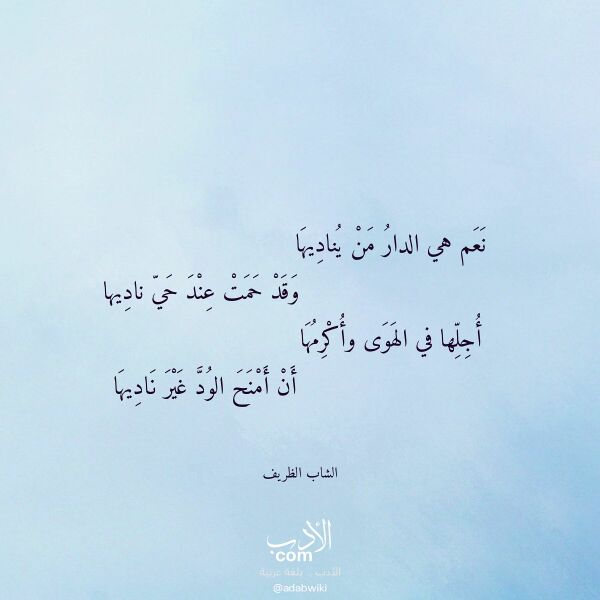 نَعَم هي الدارُ مَنْ يُنادِيهَا
وَقَدْ حَمَتْ عِنْدَ حَيّ نادِيها
أُجِلّها في الهَوَى وأُكْرِمُهَا
أَنْ أَمْنَحَ الوُدَّ غَيْرَ نَادِيهَا
الشاب الظريف
الأدب
com
الأدب .. بلغة عربية
@adabwiki